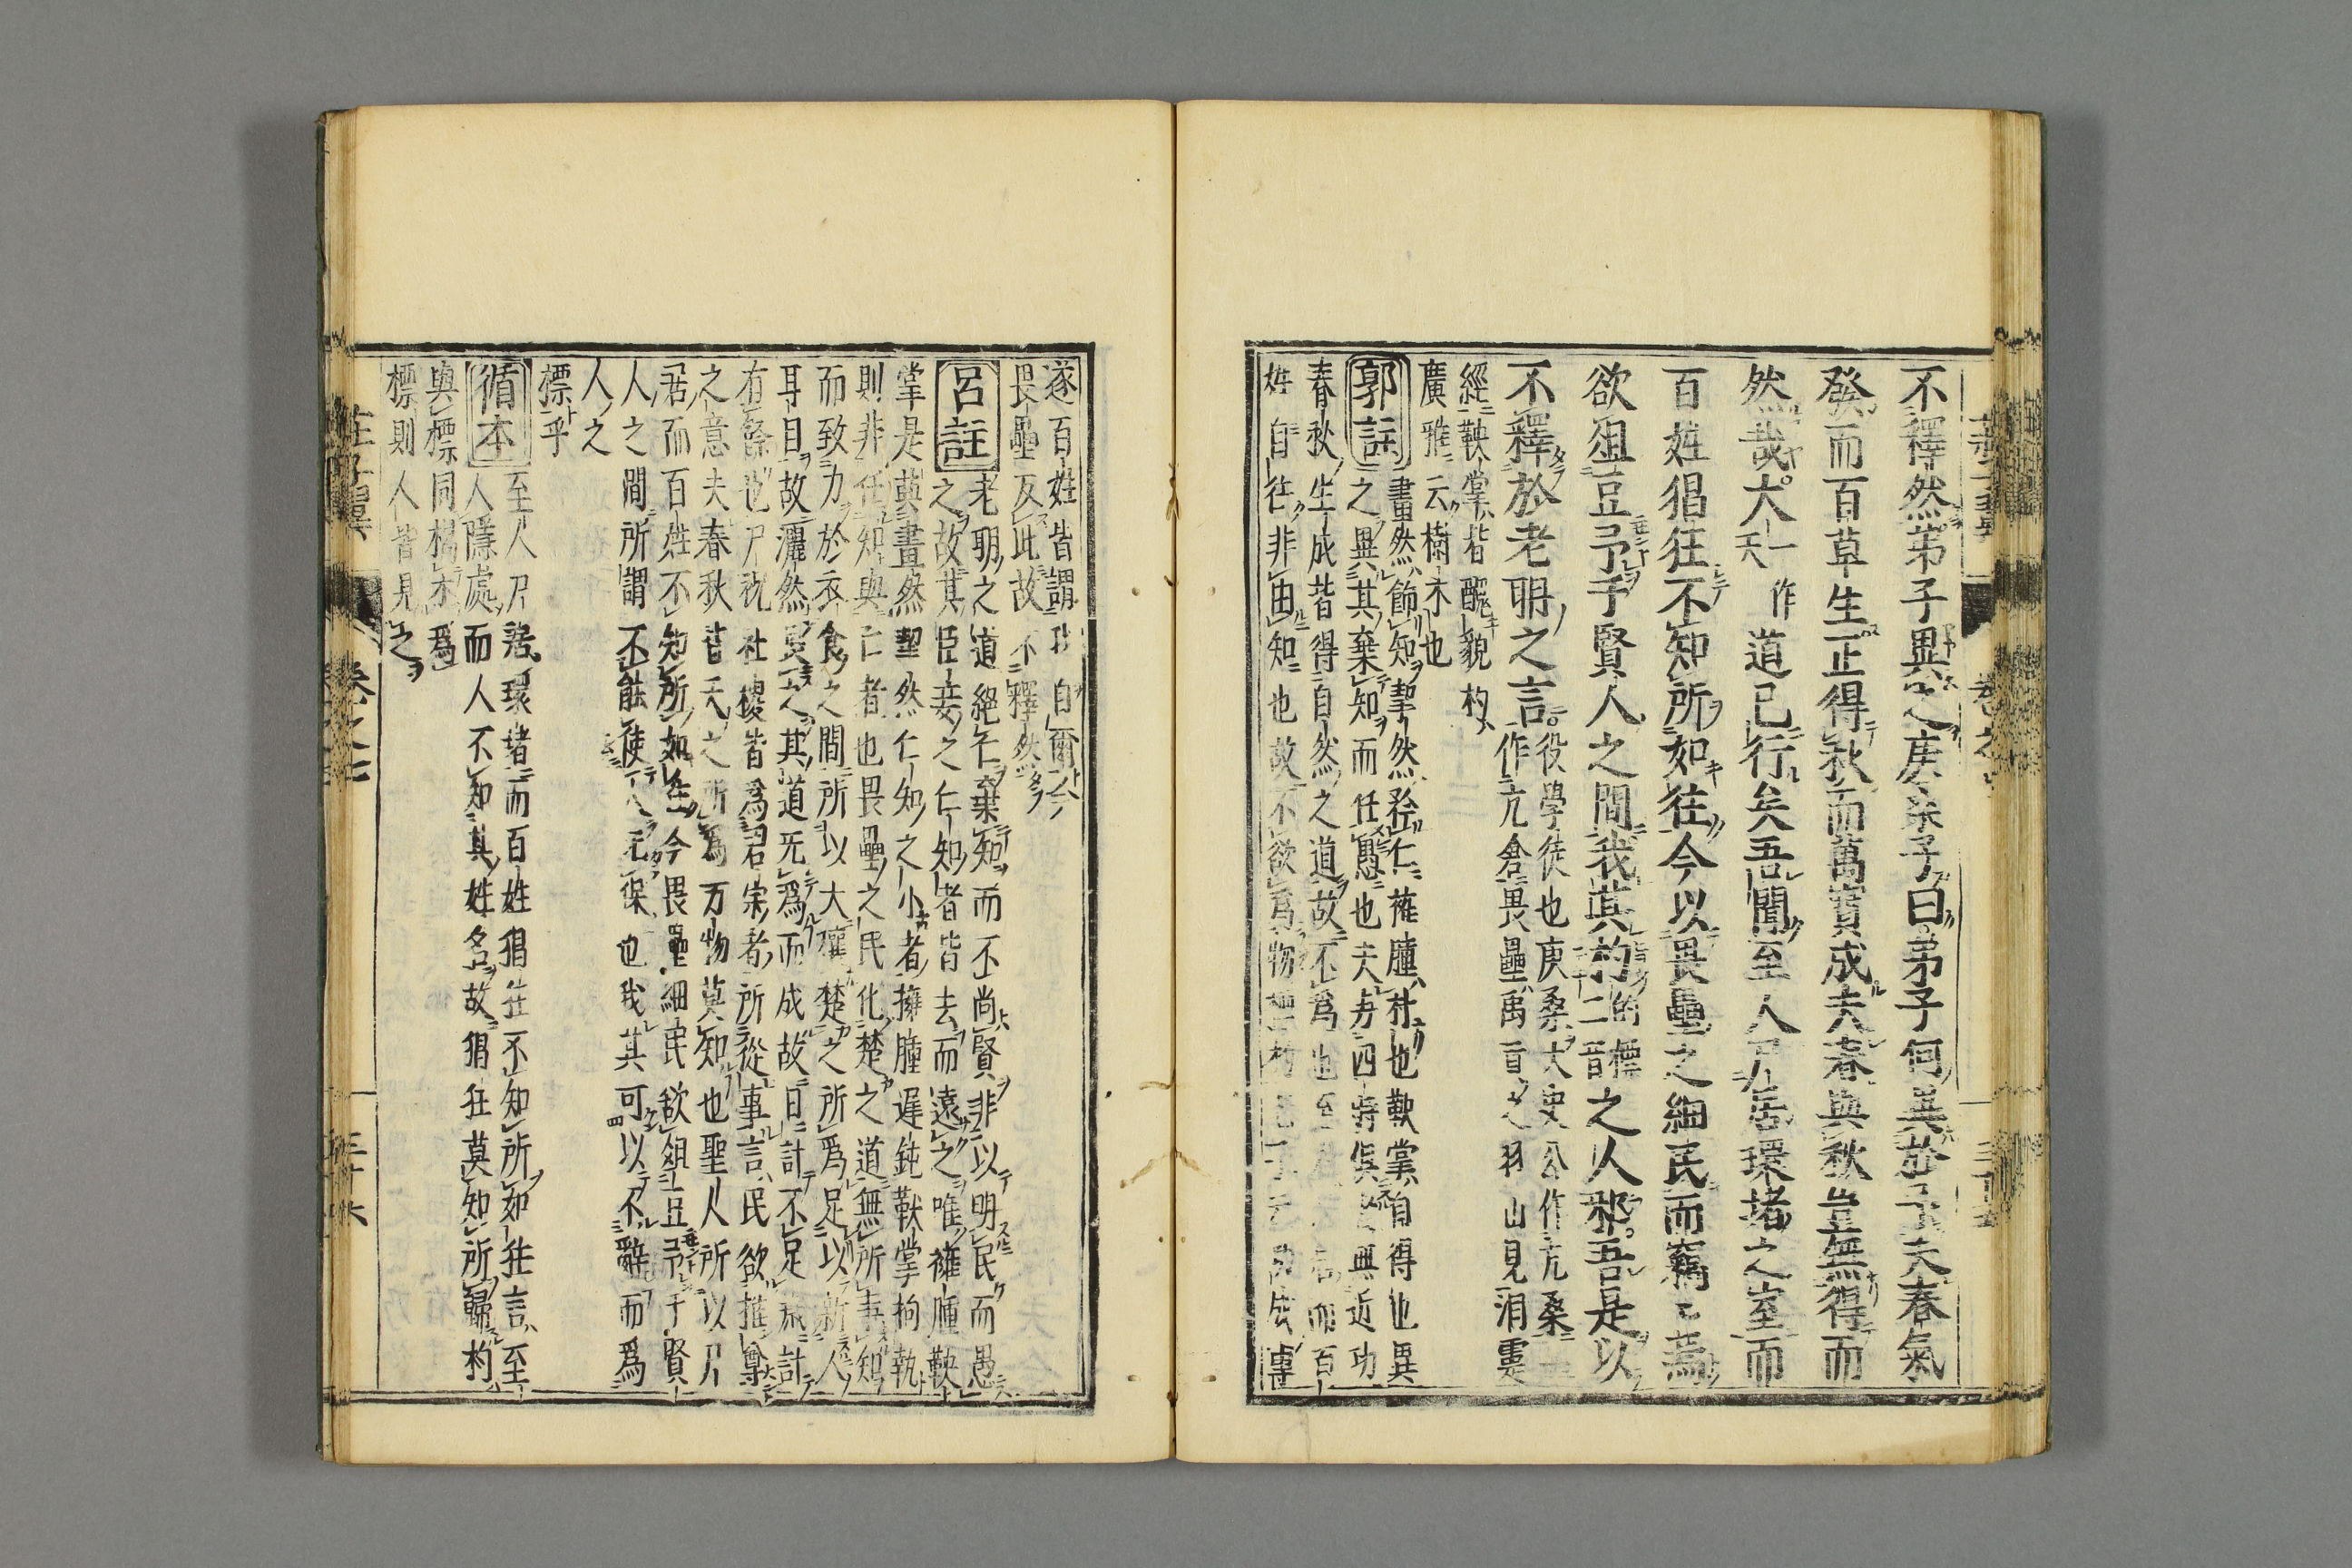 不釋然弟子異之庚桑子曰弟子何異於予夫春氣
發而百草生正得秋而萬寶成夫春與秋豈無得而
然哉大一作天道已行矣吾聞至人尸居環堵之室而
百姓猖狂不知所如往今以畏壘之細民而竊竊焉
欲俎豆予于賢人之間我其杓音標之人邪吾是以
不釋於老聃之言役學徒也庚桑太史公作亢桑
作亢倉畏壘禹貢之羽山見洞靈
經鞅掌皆醜貌杓
廣雅云樹末也
郭註 畫然飾知挈然矜仁擁腫朴也鞅掌自得也異
之異其棄知而任愚也夫與四時俱者無近功
春秋生成皆得自然之道故不爲也至人尸居而百
姓自往非由知也故不欲爲物
遂百姓皆謂我自爾今
畏壘反此故不釋然
呂註 老聃之道絕仁棄知而不尚賢非以明民而愚
之故其臣妾之仁知者皆去而遠之唯擁腫鞅
掌是與畫然挈然仁知之小者擁腫遲鈍鞅掌拘執
則非任知與仁者也畏壘之民化楚之道無所事知
而致力於衣食之間所以大穰楚之所爲足以新人
耳目故灑然異之其道无爲而成故日計不足歲計
有餘也尸祝社稷皆爲君宗者所從事言民欲推尊
之意夫春秋皆天之所爲万物莫知也聖人所以尸
居而百姓不知所如往今畏壘細民欲俎豆予于賢
人之間所謂不能使人无保也我其可以不辭而爲
人之
標乎
循本 至人尸居環堵而百姓猖狂不知所如往言至
人隱處而人不知其姓名故猖狂莫知所歸杓
與標同楬木爲
標則人皆見之
莊子翼 卷之七 三十六